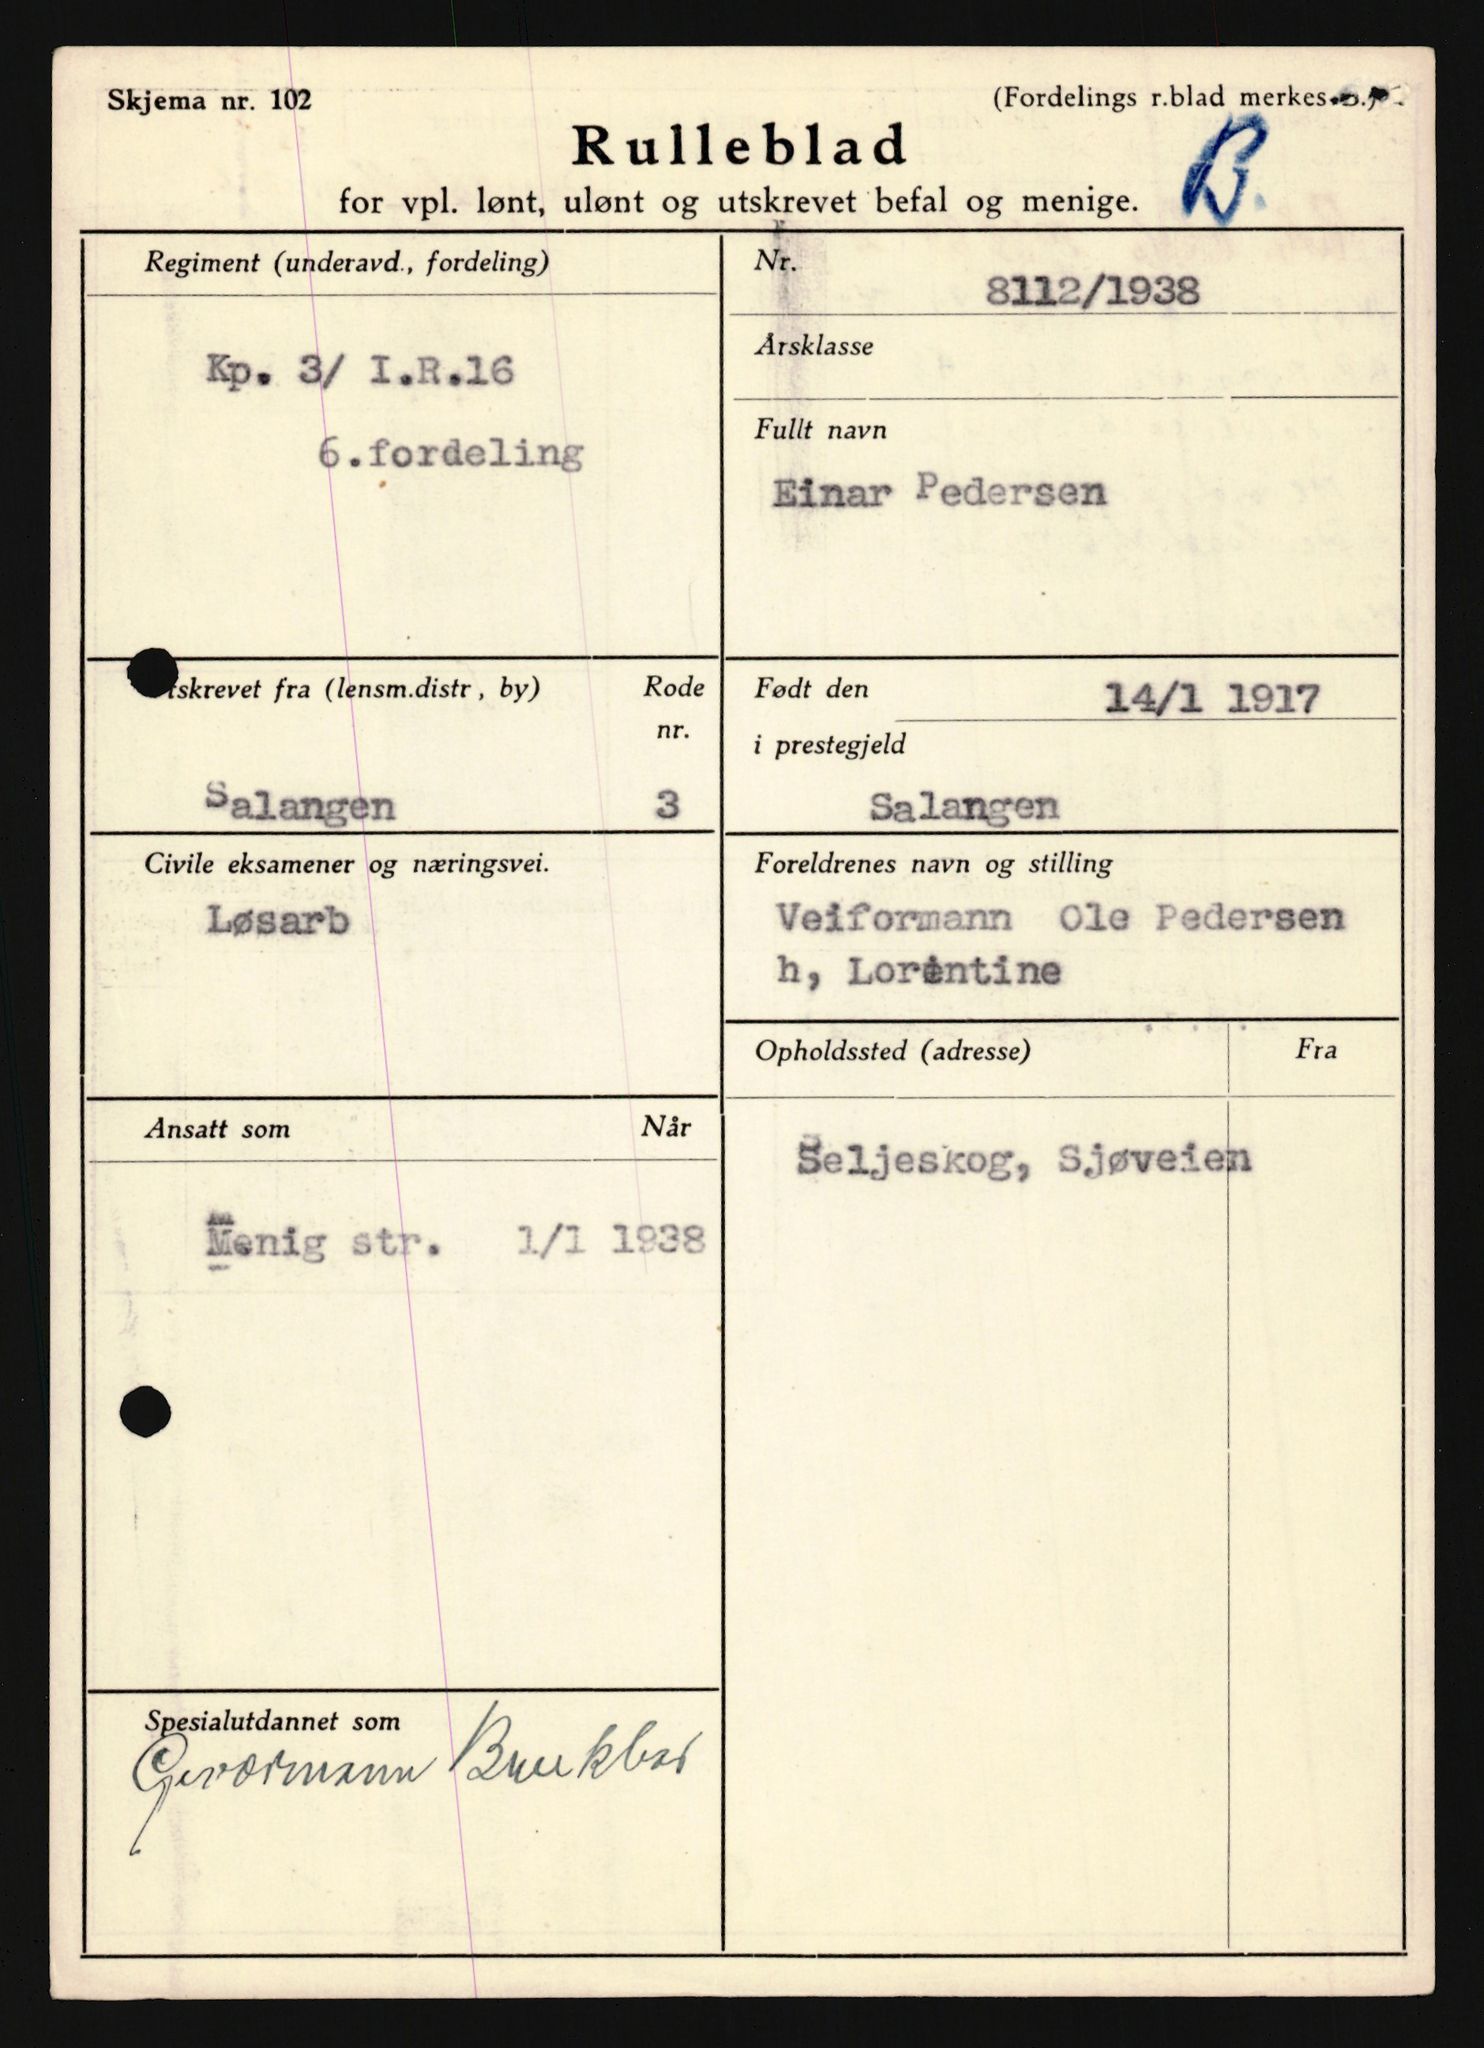 Skjema nr. 102
(Fordelings r.blad merkes
Rulleblad
B.
for vpl. lønt, ulønt og utskrevet befal og menige.
Regiment (underavd., fordeling)
Kp. 3/ I.R.16
6.fordeling
Nr.
8112/1938
Årsklasse
Fullt navn
Einar Pedersen
tskrevet fra (lensm.distr, by)
Rode
nr.
Salangen 3
Født den 14/1 1917
i prestegjeld
Salangen
Civile eksamener og næringsvei.
Løsarb
Foreldrenes navn og stilling
Veiformann Ole Pedersen
h, Lorentine
Opholdssted (adresse) Fra
Seljeskog, Sjøveien
Ansatt som Når
Menig str. 1/1 1938
Spesialutdannet som
Geværmann Brukbar